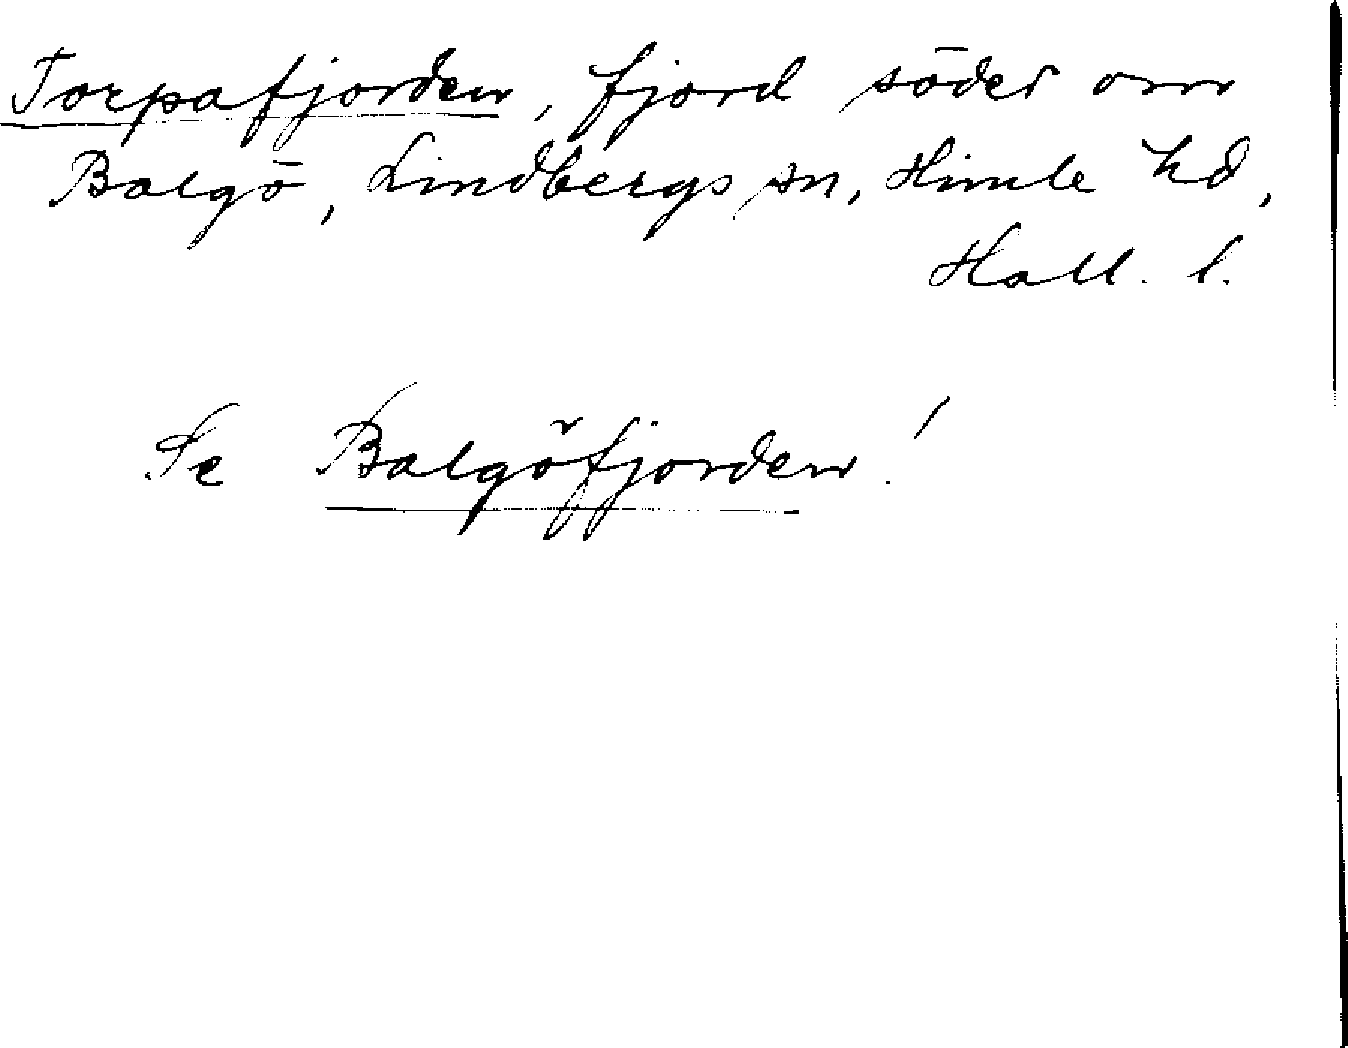 Torpafjorden, fjord söder om
Balgö, Lindbergs sn, Himle hd,
Hall. l.
Se Balgöfjorden!